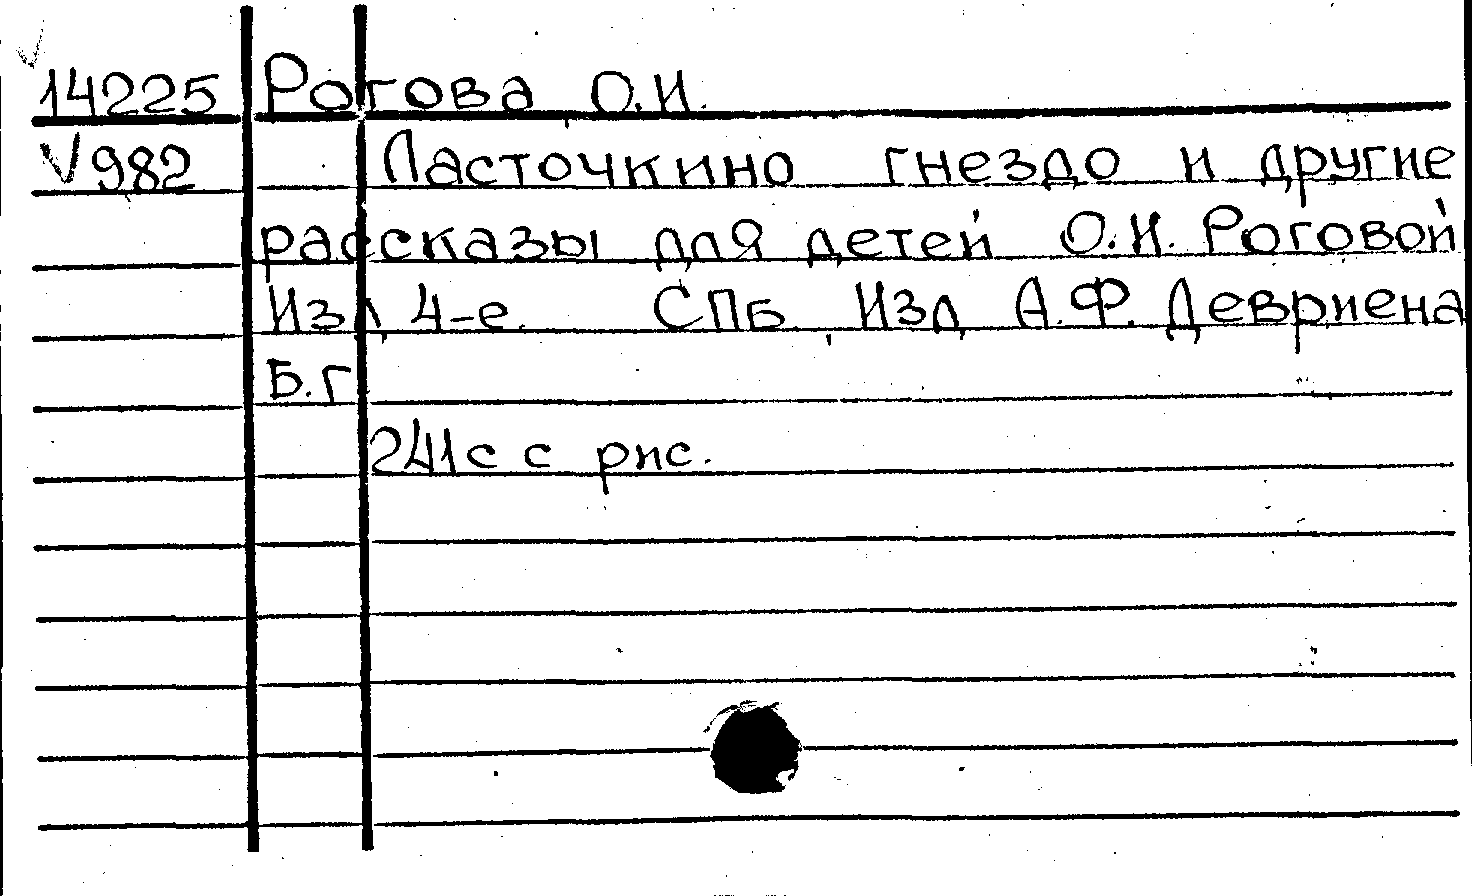 14225 Рогова О.И.
V 982 Ласточкино гнездо и другие
рассказы для детей О.И. Роговой
Изд, 4-е. СПБ, Изд, А.Ф. Девриена
Б.г
241с с рис.